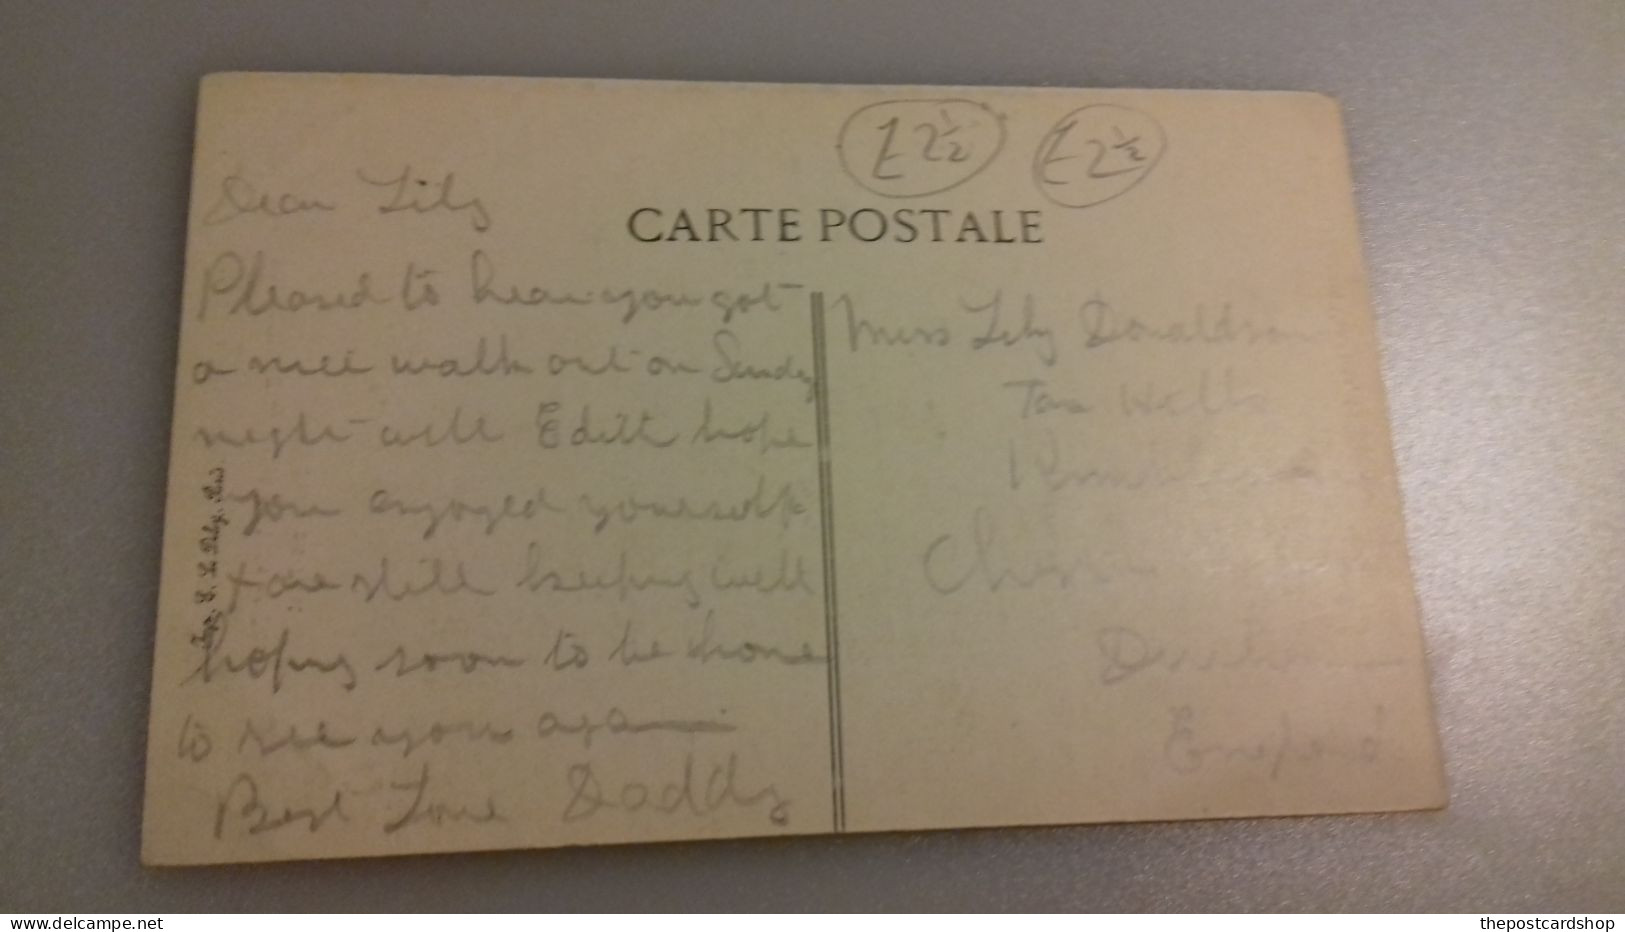 £2½ £2½
CARTE POSTALE
Dear Lily
Pleased to hear you got
a nice walk out on Sunday
night with Edith hope
you enjoyed yourself
& are still keeping well
hoping soon to be home
to see you again
Best Love Daddy
Miss Lily Donaldson
Durham
England
thepostcardshop